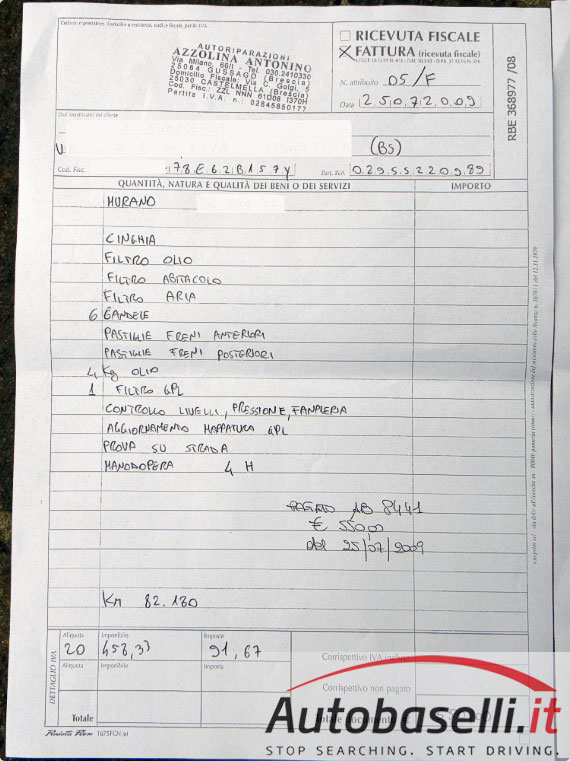 Cedente o prestatore, domicilio o residenza, cod. e fiscale, partita IVA
AUTORIPARAZIONI
AZZOLINA ANTONINO
Via Milano, 66/I - Tel. 030.2410330
25064 GUSSAGO (Brescia)
Domicilio Fiscale: Via C. Golgi, 5
25030 CASTELMELLA (Brescia)
Cod. Fisc.: ZZL NNN 61D08 I370H
Partita I.V.A. n.: 02845850177
RICEVUTA FISCALE
FATTURA (ricevuta fiscale)
N. attribuito 05/F
Data 25072009
RBE 368977 /08
Dati identificativi del cliente
(BS)
Cod. Fisc. 78E62B157Y Part. IVA 02955220989
QUANTITÀ, NATURA E QUALITÀ DEI BENI O DEI SERVIZI IMPORTO
MURANO
CINGHIA
FILTRO OLIO
FILTRO ABITACOLO
FILTRO ARIA
6 CANDELE
PASTIGLIE FRENI ANTERIORI
PASTIGLIE FRENI POSTERIORI
4 Kg OLIO
1 FILTRO GPL
CONTROLLO LIVELLI, PRESSIONE, FANALERIA
AGGIORNAMENTO MAPPATURA GPL
PROVA SU STRADA
MANODOPERA 4 H
PAGATO AB 8441
€ 550,00
del 25/07/2009
Km 82.180
DETTAGLIO IVA
Aliquota Imponibile Imposta
20 458,33 91,67
Corrispettivo IVA inclusa
Aliquota Imponibile Imposta
Corrispettivo non pagato
Totale
Totale documento €
1675FCN
Autobaselli.it
STOP SEARCHING. START DRIVING.